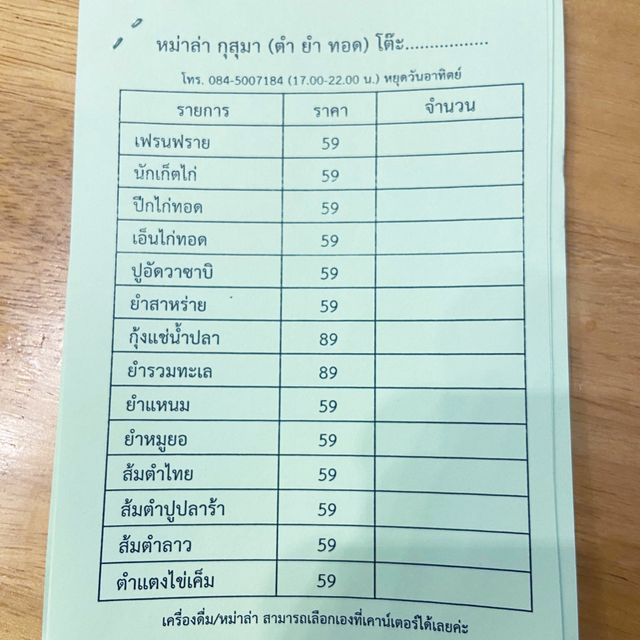 หม่าล่า กุสุมา (ตำ ยำ ทอด) โต๊ะ.................
โทร. 084-5007184 (17.00-22.00 น.) หยุดวันอาทิตย์
รายการ ราคา จำนวน
เฟรนฟราย 59
นักเก็ตไก่ 59
ปีกไก่ทอด 59
เอ็นไก่ทอด 59
ปูอัดวาซาบิ 59
ยำสาหร่าย 59
กุ้งแช่น้ำปลา 89
ยำรวมทะเล 89
ยำแหนม 59
ยำหมูยอ 59
ส้มตำไทย 59
ส้มตำปูปลาร้า 59
ส้มตำลาว 59
ตำแตงไข่เค็ม 59
เครื่องดื่ม/หม่าล่า สามารถเลือกเองที่เคาน์เตอร์ได้เลยค่ะ